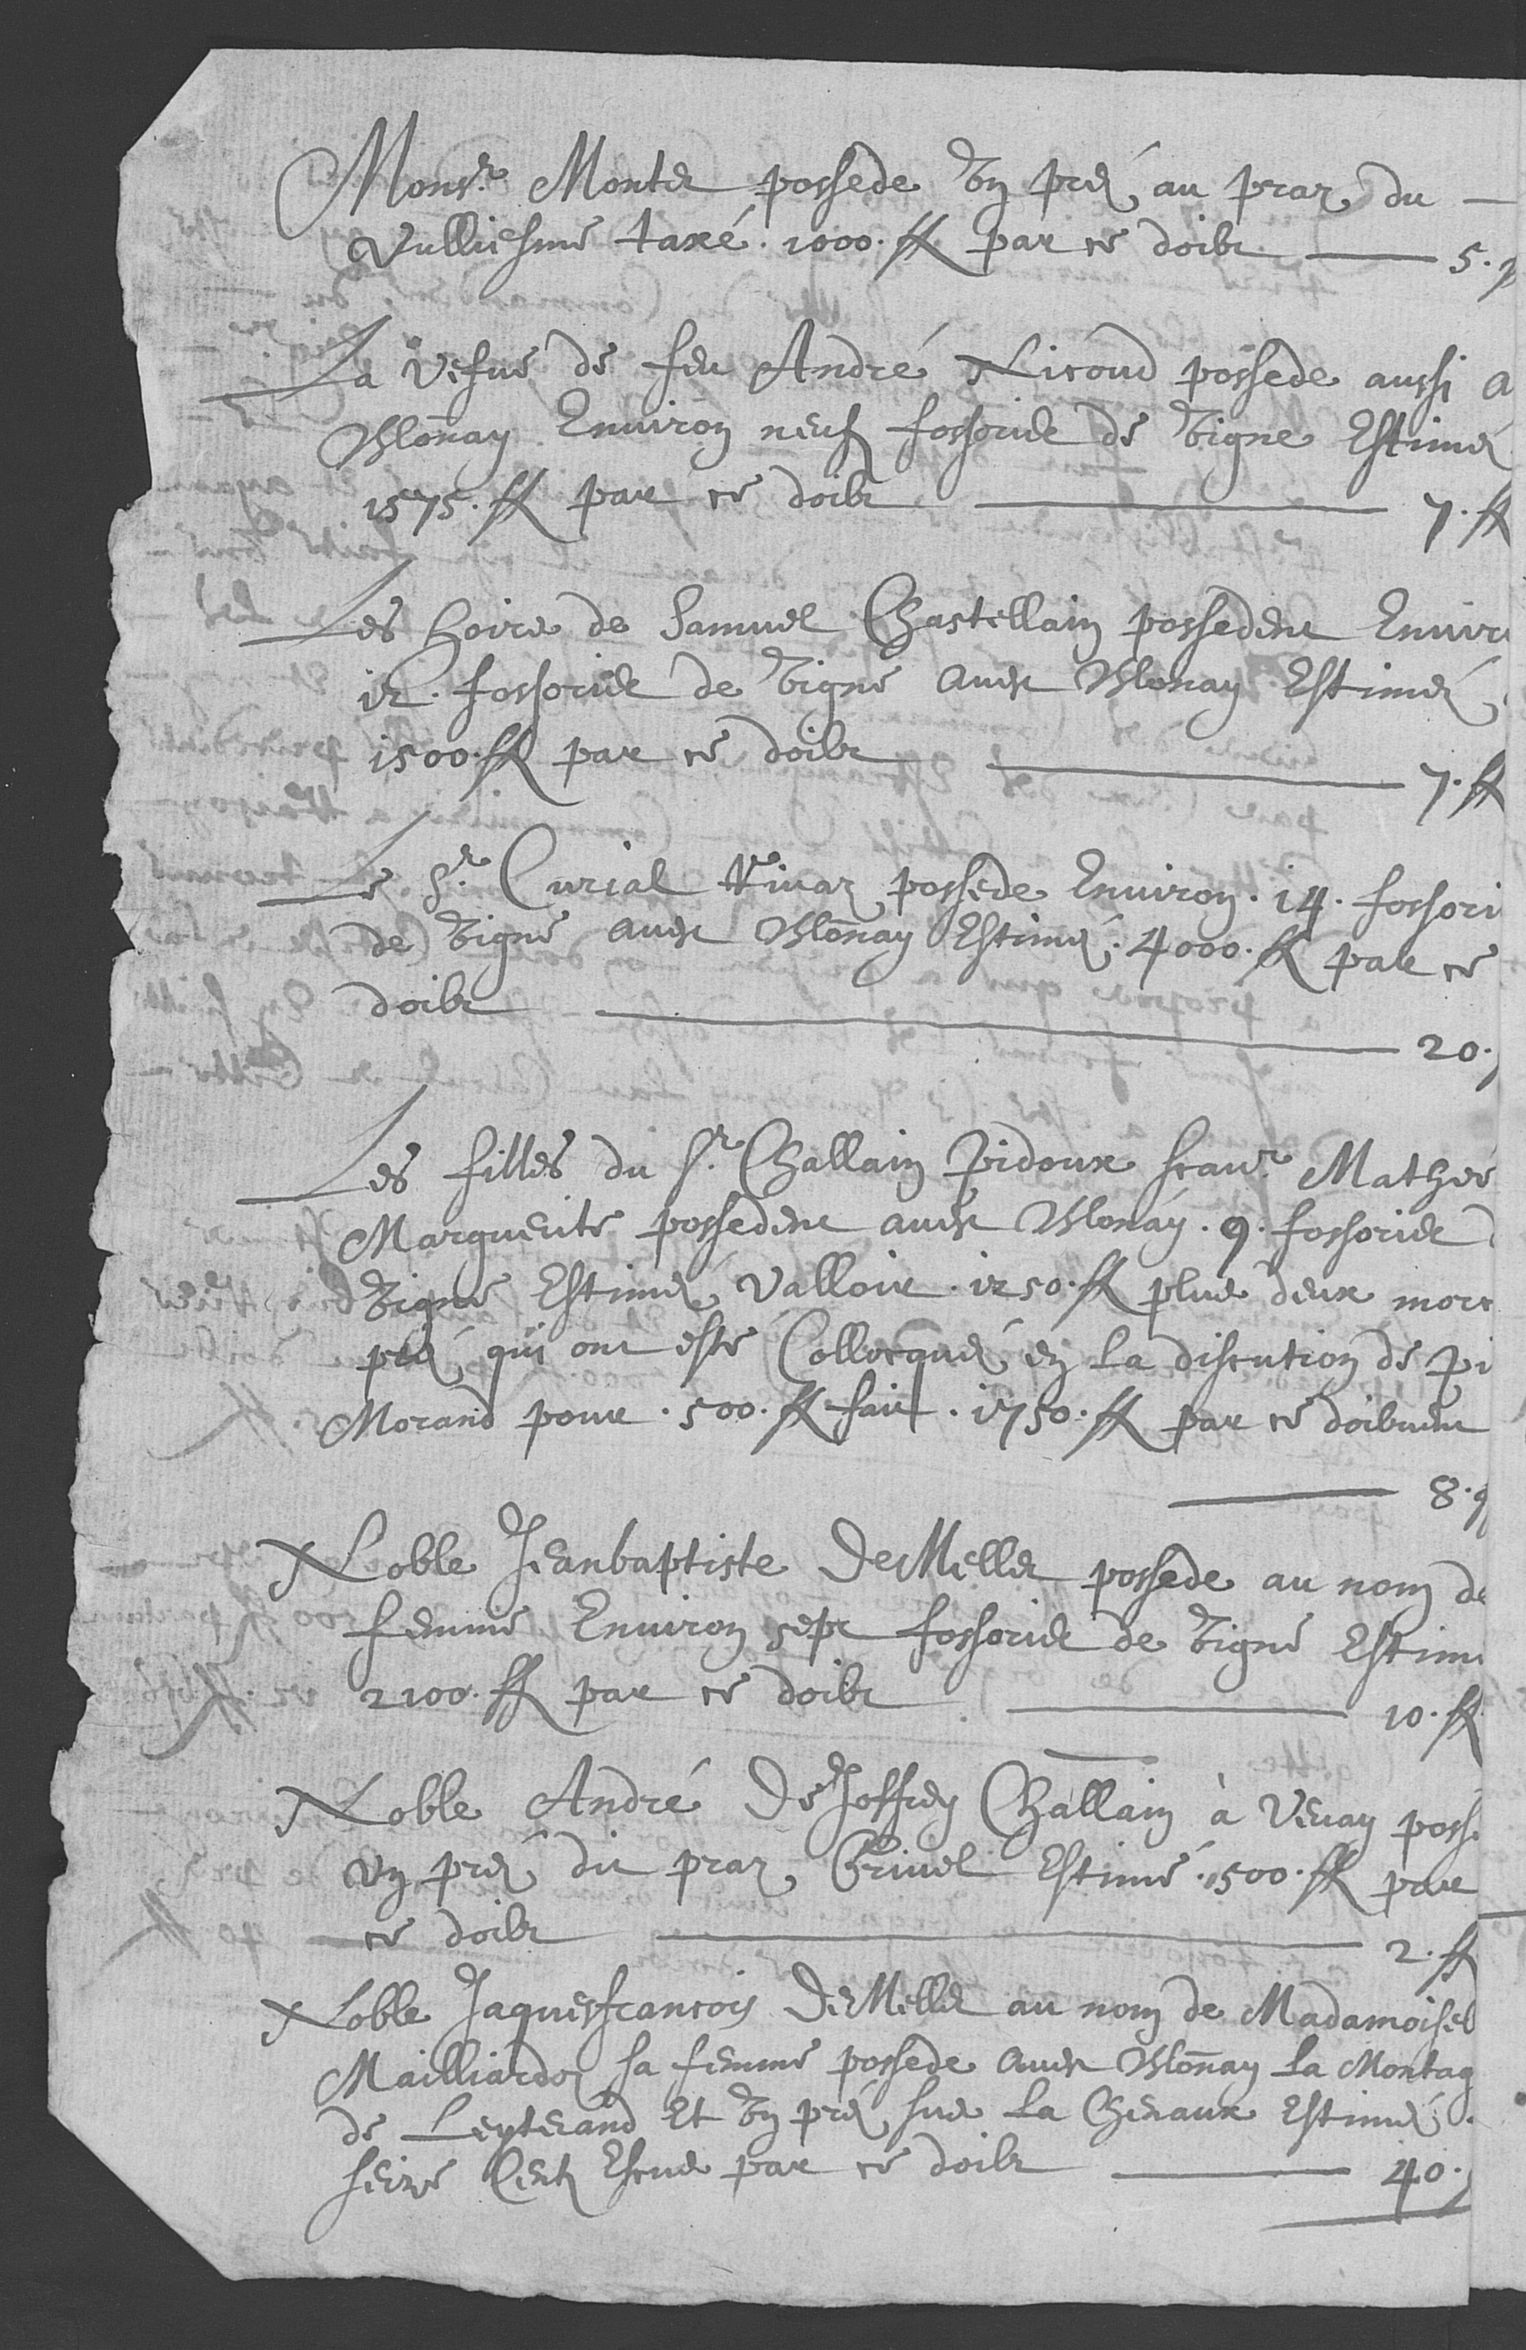 Mons.r Montet possede vn pré au praz du —
Vulliesme taxé . 1000 . ff par ce doibt — 5.
La vefue de feu André Nicoud possede aussi a
Blonay Enuiron neuf fossories de vigne Estimé
1575 . ff par ce doibt — 7 . ff
Les hoirs de Samuel Chastellain possedent Enuir
12 . fossories de vigne auest Blonay Estimé
1500 . ff par ce doibt — 7 . ff
Le S.r Curial possede Enuiron . 14 . fossori
de vigne auest Blonay Estimé . 4000 . ff par ce
doibt — 20 .
Les filles du S.r Challain Pidoux scau.r Matheé
Marguerite possedent auest Blonay . 9 . fossories
vigne Estimé valloir . 1250 . ff plus deux morc
pré qui ont esté Collocqué en la discution de Pi
Morand pour . 500 . ff fait . 1750 . ff par ce doibuent
— 8 .
Noble Jeanbaptiste DeMellet possede au nom de
femme Enuiron sept fossories de vigne Estim
2100 . ff par ce doibt — 10 . ff
Noble André DeJoffrey Challain à Veuay poss
vn pré dit praz Criuel Estimé . 500 . ff par
ce doibt — 2 . ff
Noble Jaquesfrancois DeMellet au nom de Madamoisel
Mailliardoz sa femme possede auest Blonay la Montag
de Leyterand Et vn pré sus la Chenaux Estimé .
seize Cent Escus par ce doibt — 40 .